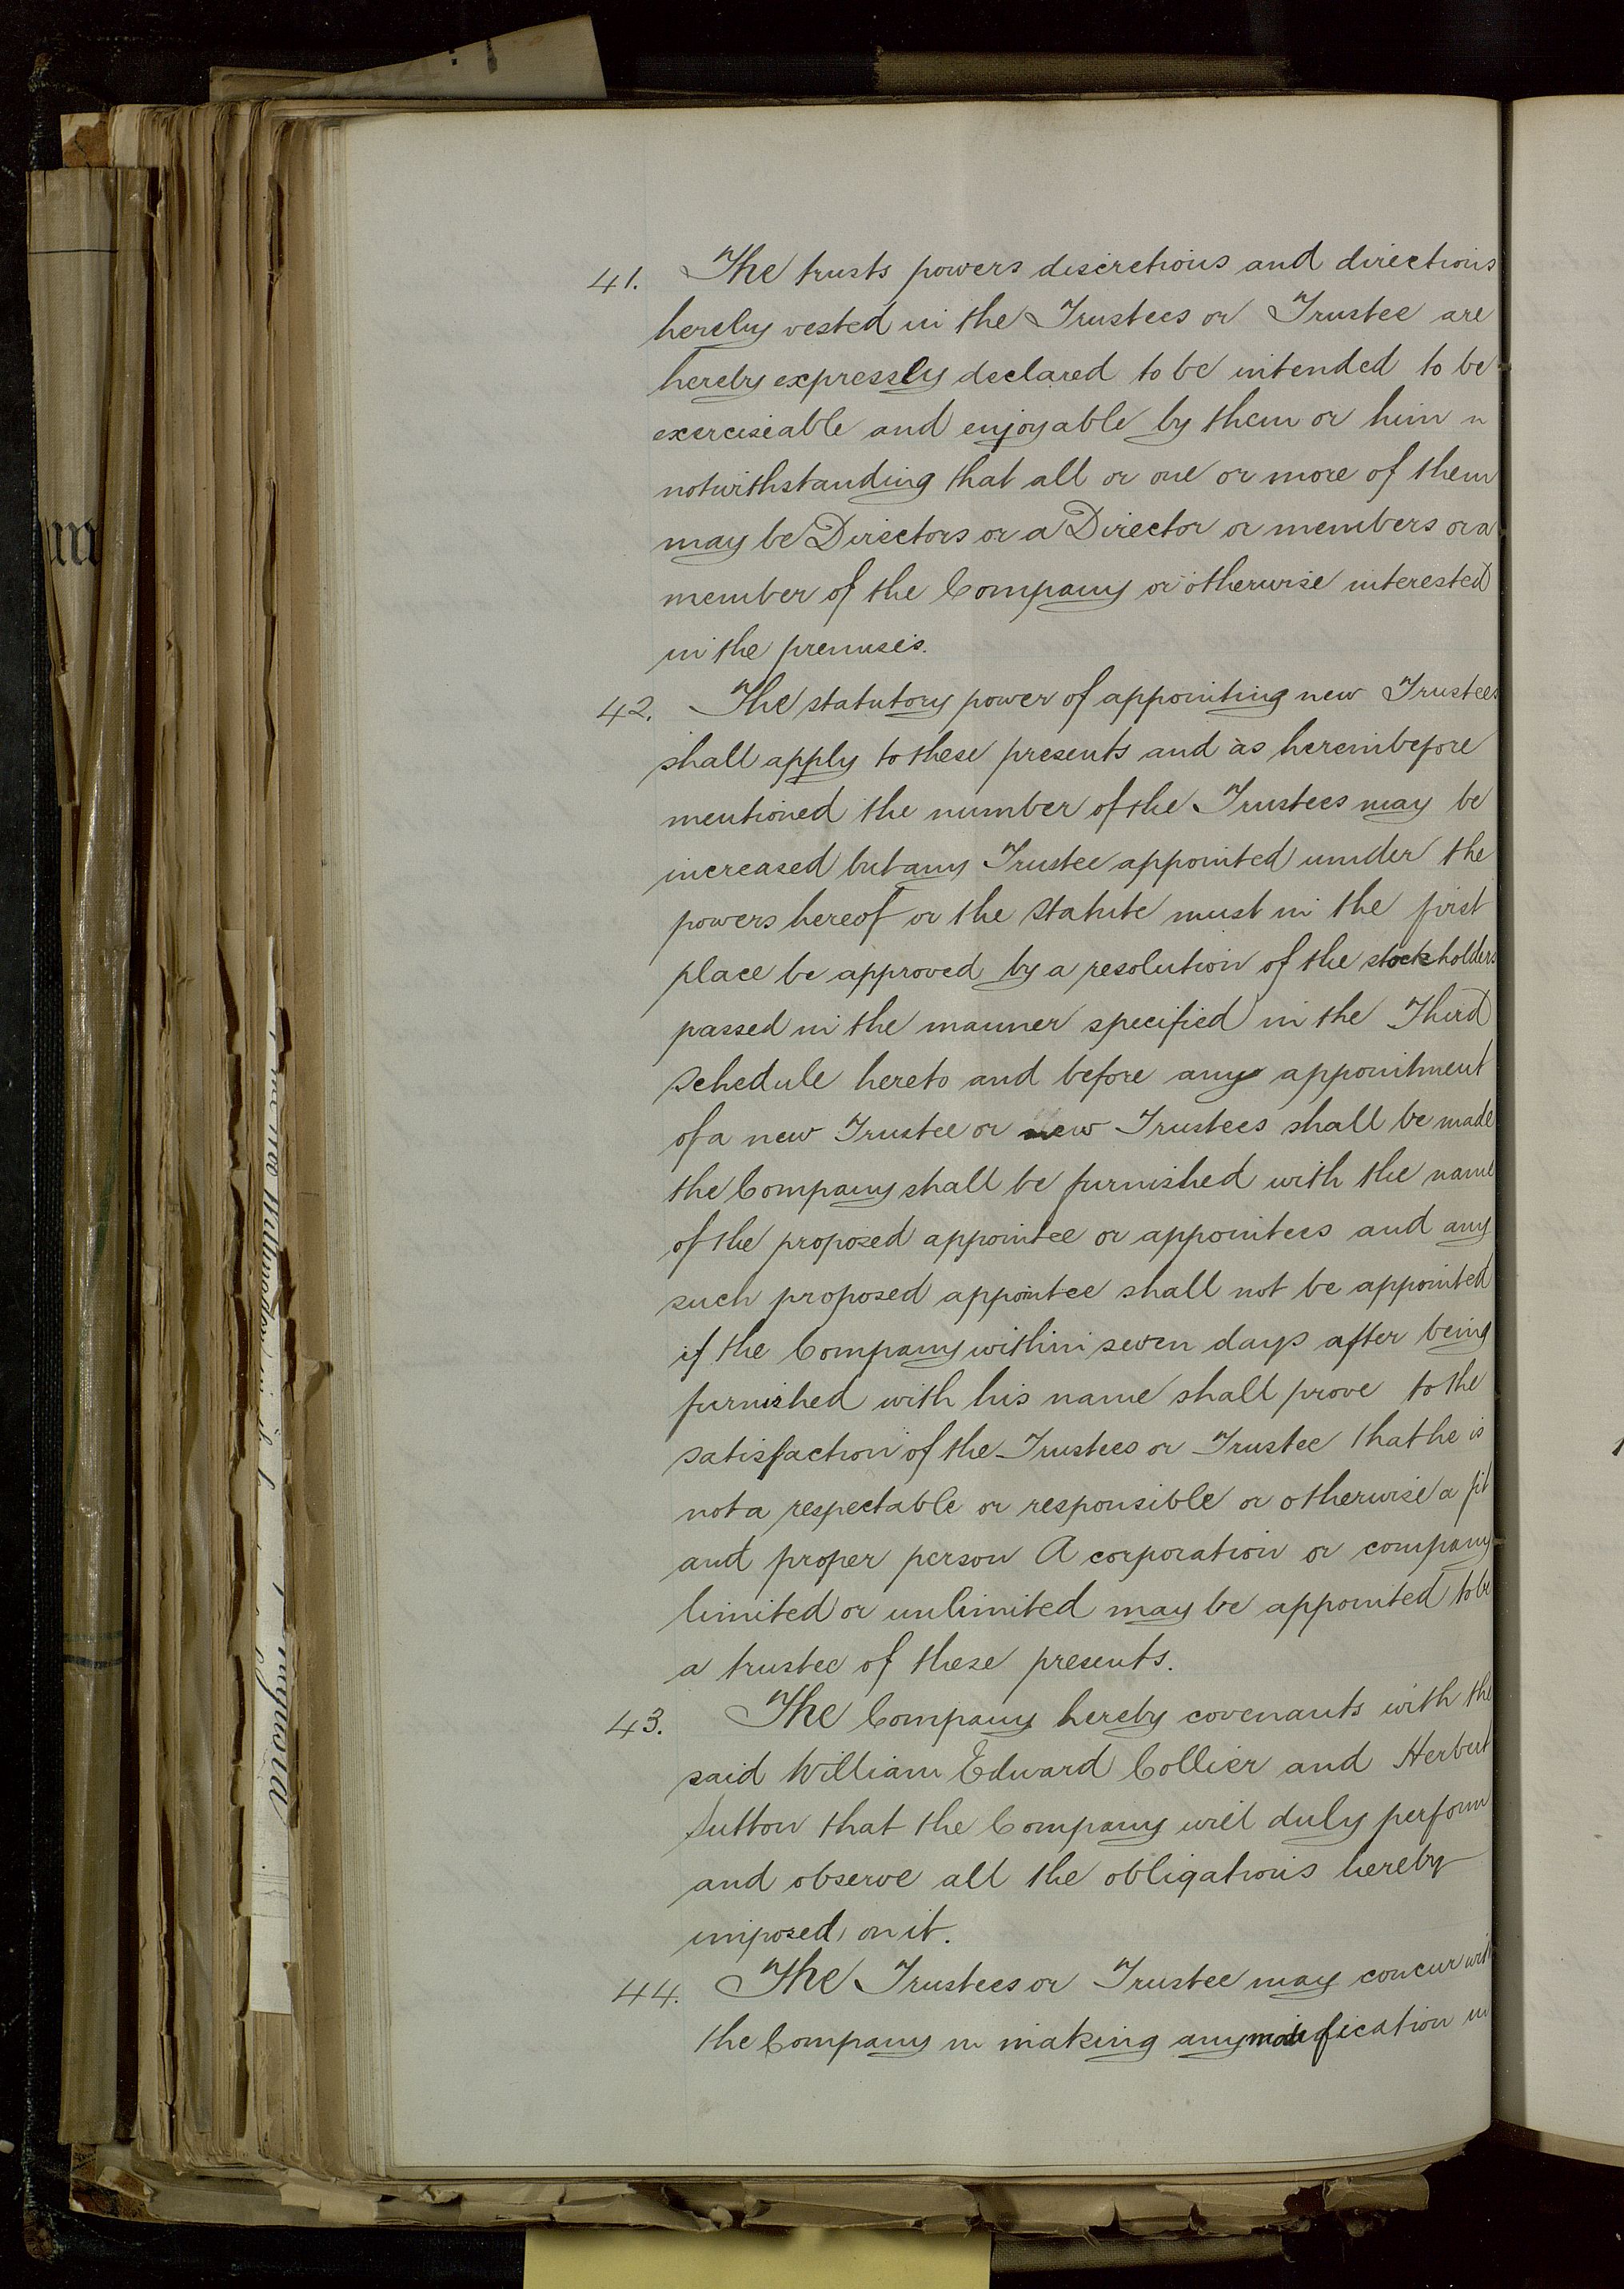 41. The trusts powers discretions and directions
hereby vested in the Trustees or Trustee are
hereby expressly declared to be intended to be
exerciseable and enjoyable by them or him n
notwithstanding that all or one or more of them
may be Directors or a Director or members or a
member of the Company or otherwise interested
in the premises.
42. The statutory power of appointing new Trustees
shall apply to these presents and as hereinbefore
mentioned the number of the Trustees may be
increased but any Trustee appointed under the
powers hereof or the statute must in the first
place be approved by a resolution of the stockholders
passed in the manner specified in the Third
Schedule hereto and before any appointment
of a new Trustee or new Trustees shall be made
the Company shall be furnished with the name
of the proposed appointee or appointees and any
such proposed appointee shall not be appointed
if the Company within seven days after being
furnished with his name shall prove to the
satisfaction of the Trustees or Trustee that he is
not a respectable or responsible or otherwise a fit
and proper person A corporation or company
limited or unlimited may be appointed to be
a trustee of these presents.
43. The Company hereby covenants with the
said William Edward Collier and Herbert
Sutton that the Company will duly perform
and observe all the obligations hereby
imposed on it.
44. The Trustees or Trustee may concur with
the Company in making any modification in